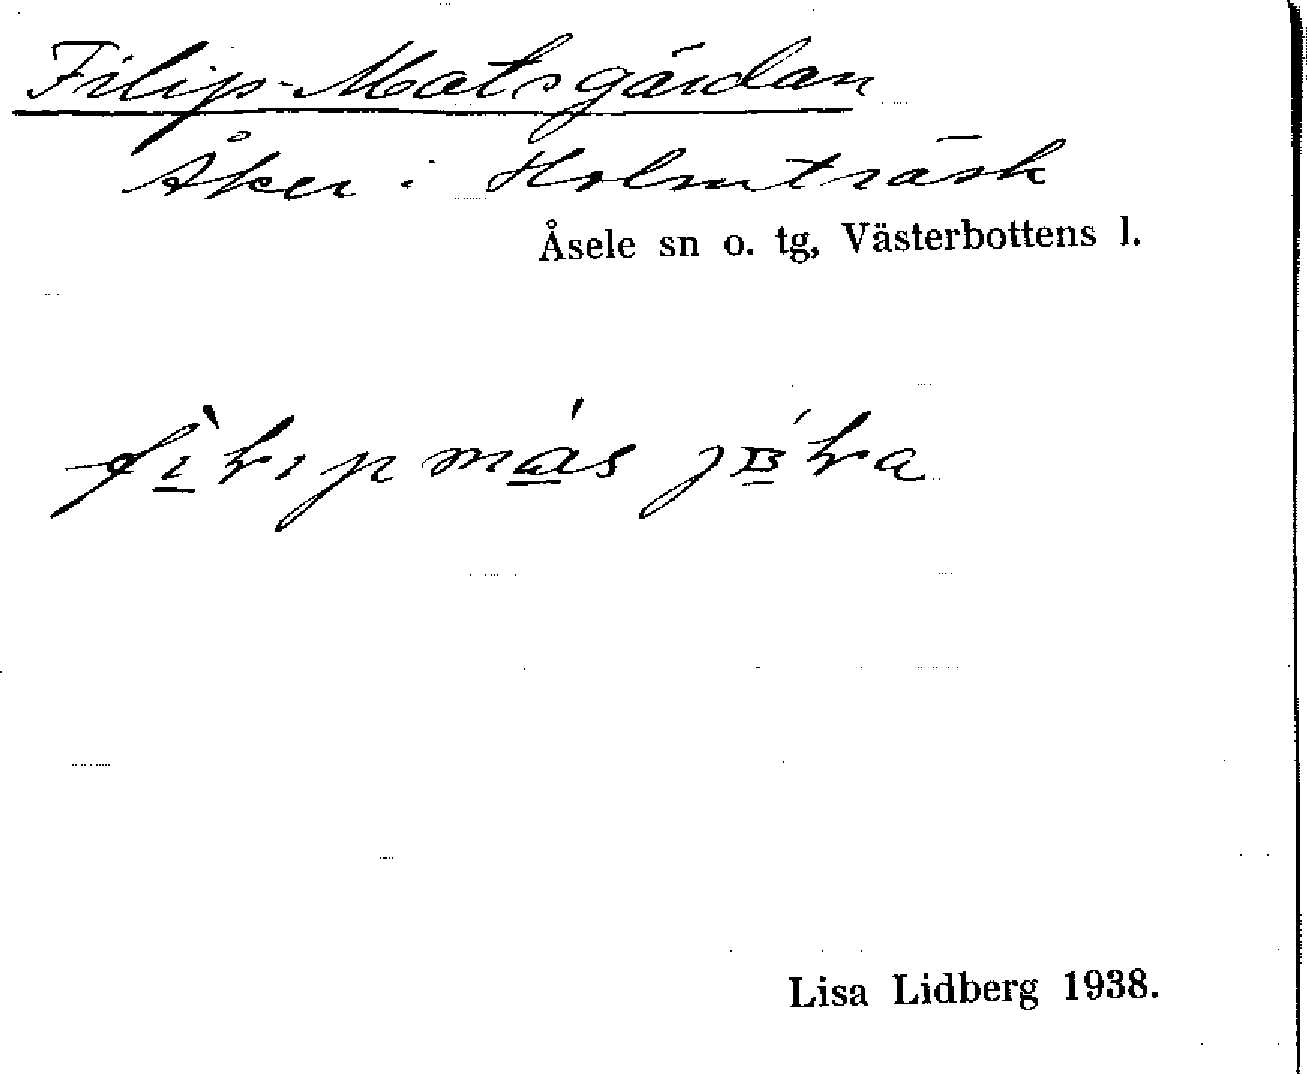 Filip-Matsgärdan
Åker i Holmträsk
Åsele sn o. tg, Västerbottens l.
Lisa Lidberg 1938.